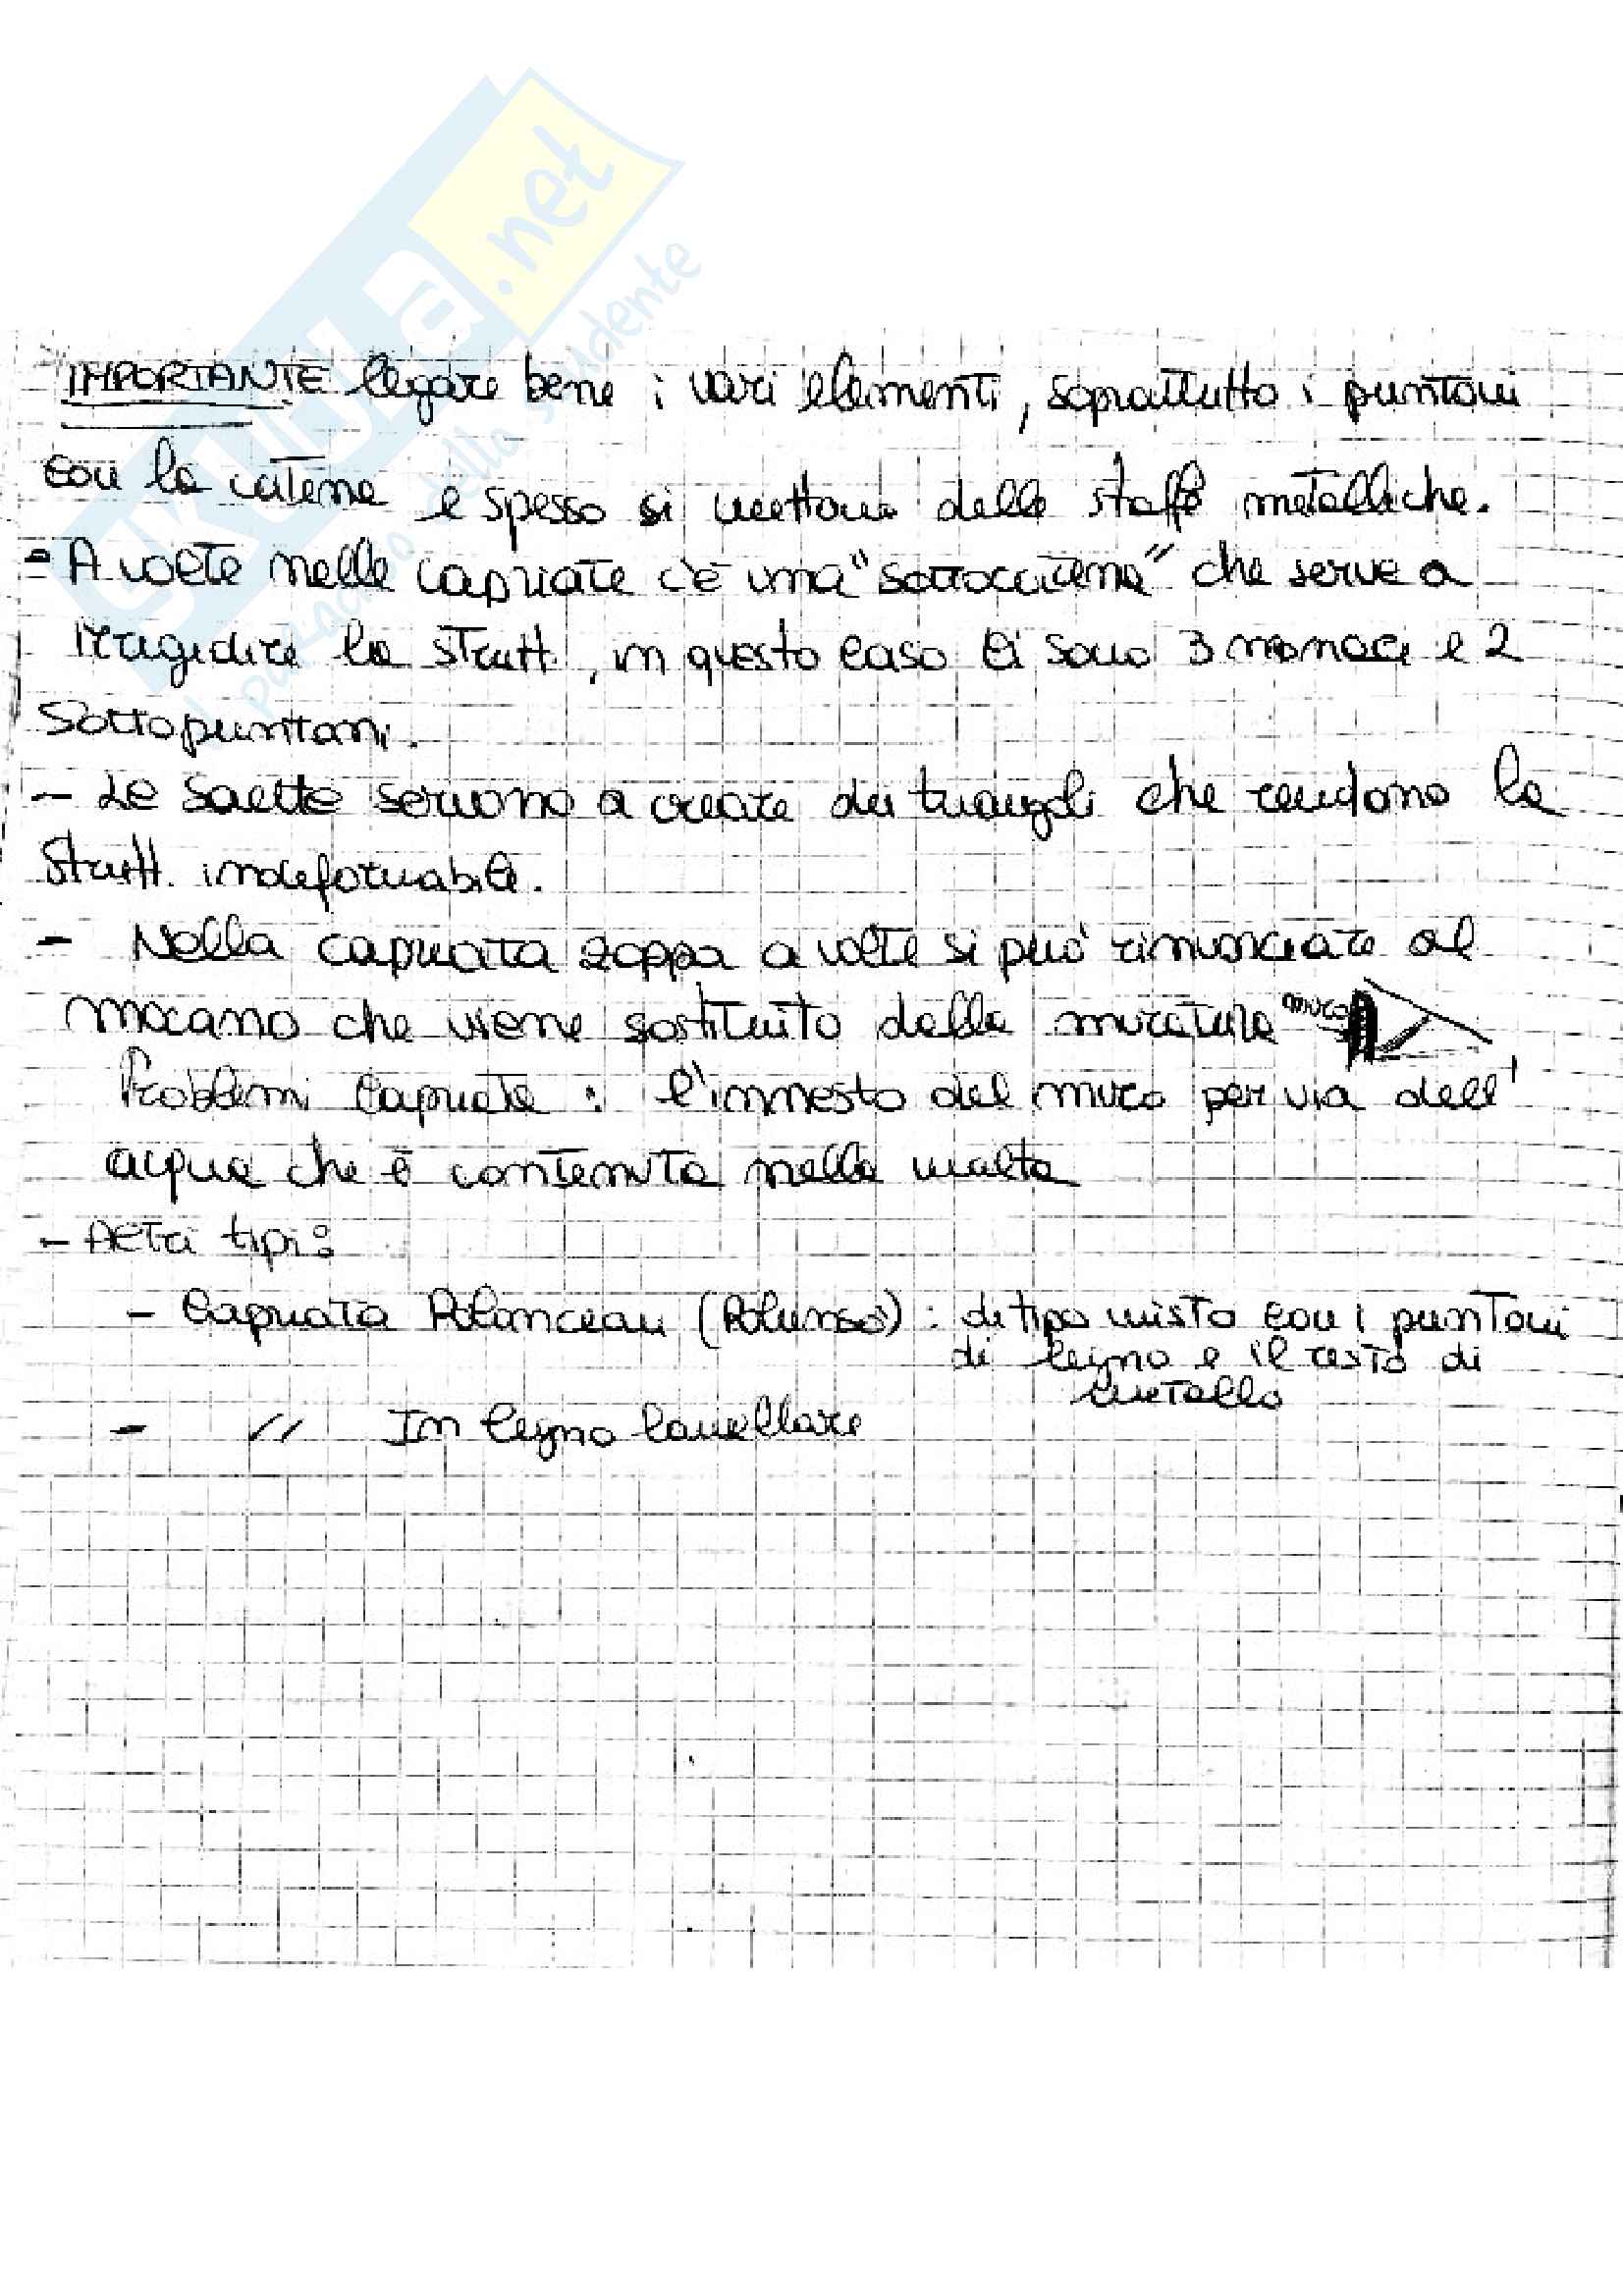 skuola.net
il paradiso dello studente
IMPORTANTE legare bene i vari elementi, soprattutto i puntoni
con la catena e spesso si mettono delle staffe metalliche.
- A volte nelle capriate c'è una "sottocatena" che serve a
irrigidire la strutt., in questo caso ci sono 3 monaci e 2
sottopuntoni.
- Le saette servono a creare dei triangoli che rendono la
strutt. indeformabile.
- Nella capriata zoppa a volte si può rinunciare al
mocano che viene sostituito dalla muratura muro
Problemi capriate : l'innesto del muro per via dell'
acqua che è contenuta nella malta
- Altri tipi:
- Capriata Polanceau (Polunsò) : di tipo misto con i puntoni
di legno e il resto di
metallo
- // In legno lamellare